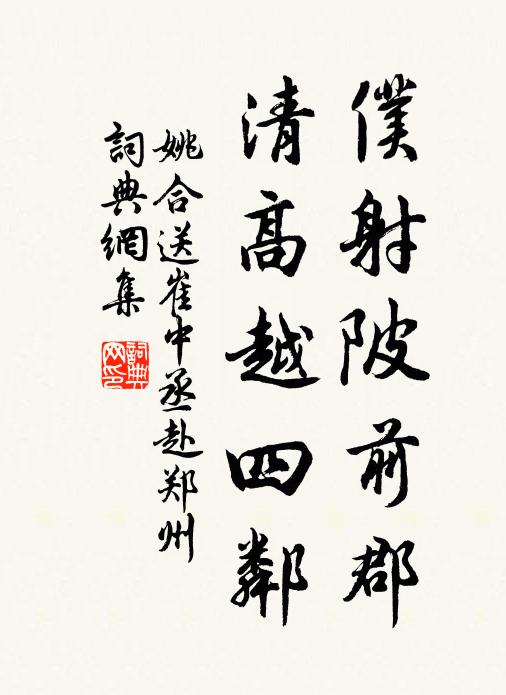 僕射陂前郡
清高越四鄰
姚合送崔中丞赴郑州
詞典網集
詞典网印